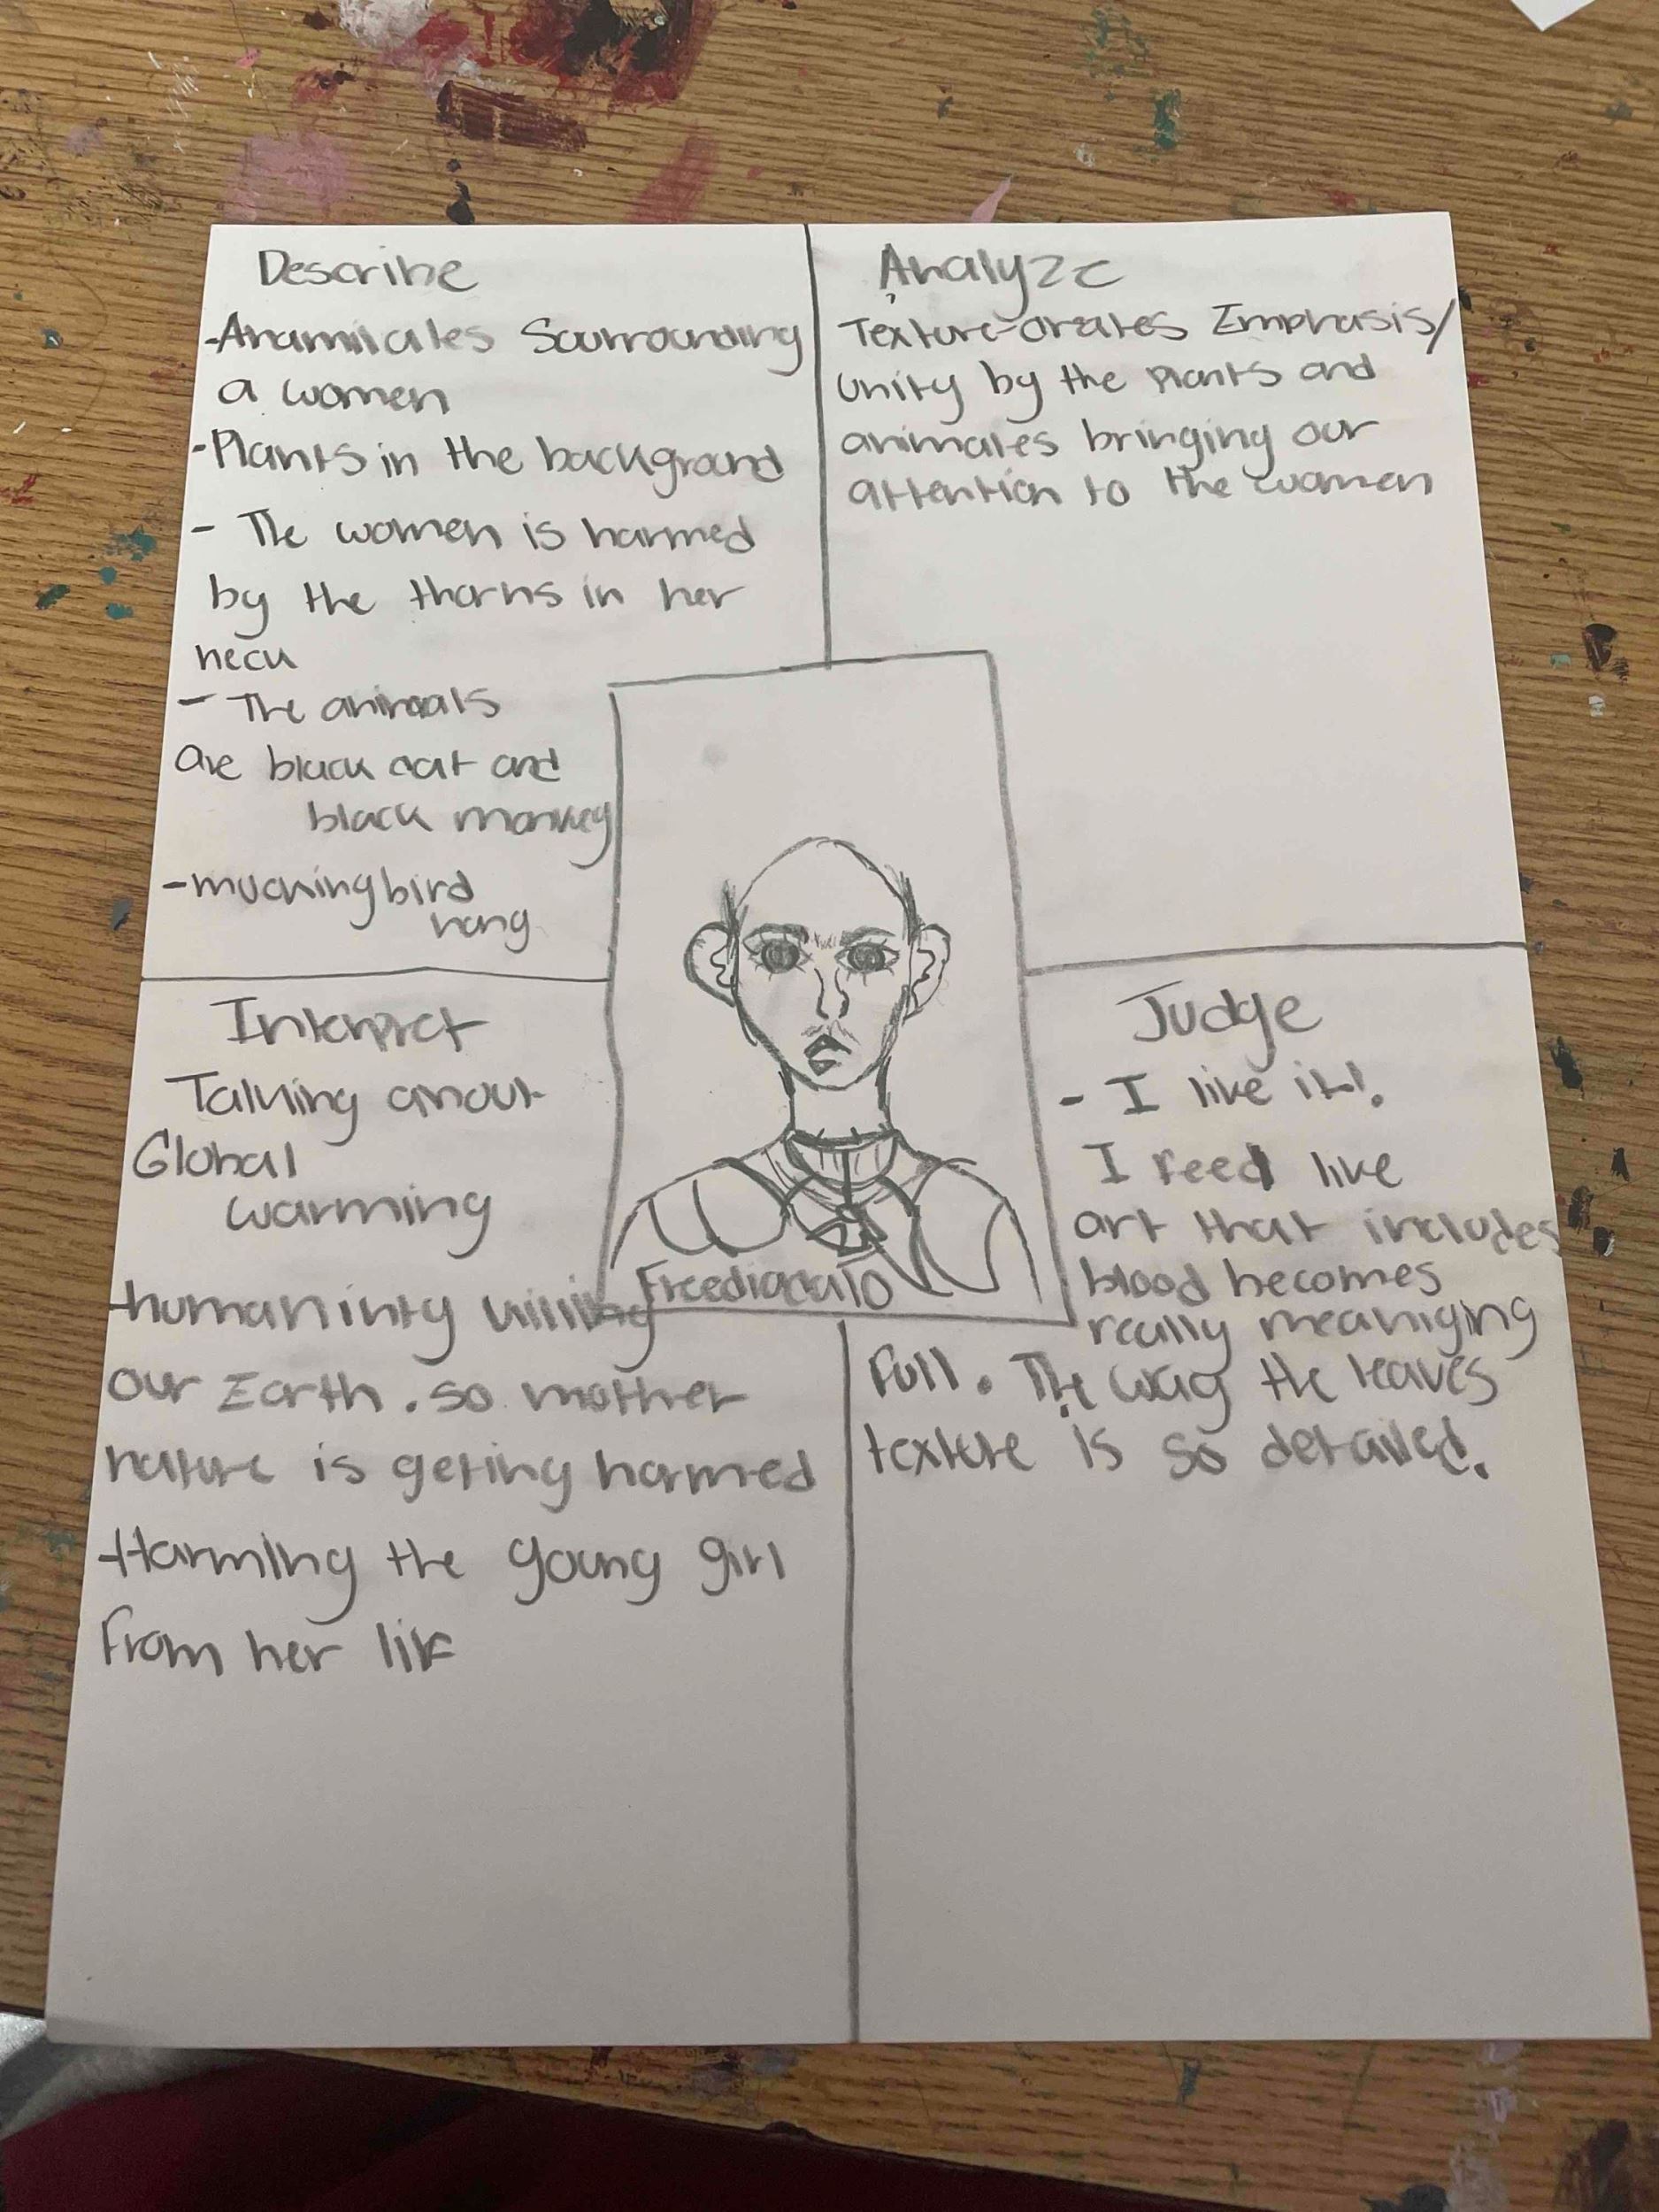 Describe
-Anamilales Sourrounding
a women
-Plants in the background
- The women is harmed
by the thorns in her
neck
- The animals
are black cat and
black monkey
-muckingbird
hang
Analyze
Texture-creates Emphasis/
unity by the plants and
animales bringing our
attention to the women
Interpret
Talking about
Global
warming
-humaninty killing
our Earth. so mother
nature is geting harmed
-Harming the young girl
from her life
Judge
- I like it!.
I feel like
art that includes
blood becomes
really meaniging
full. The way the leaves
texture is so detailed.